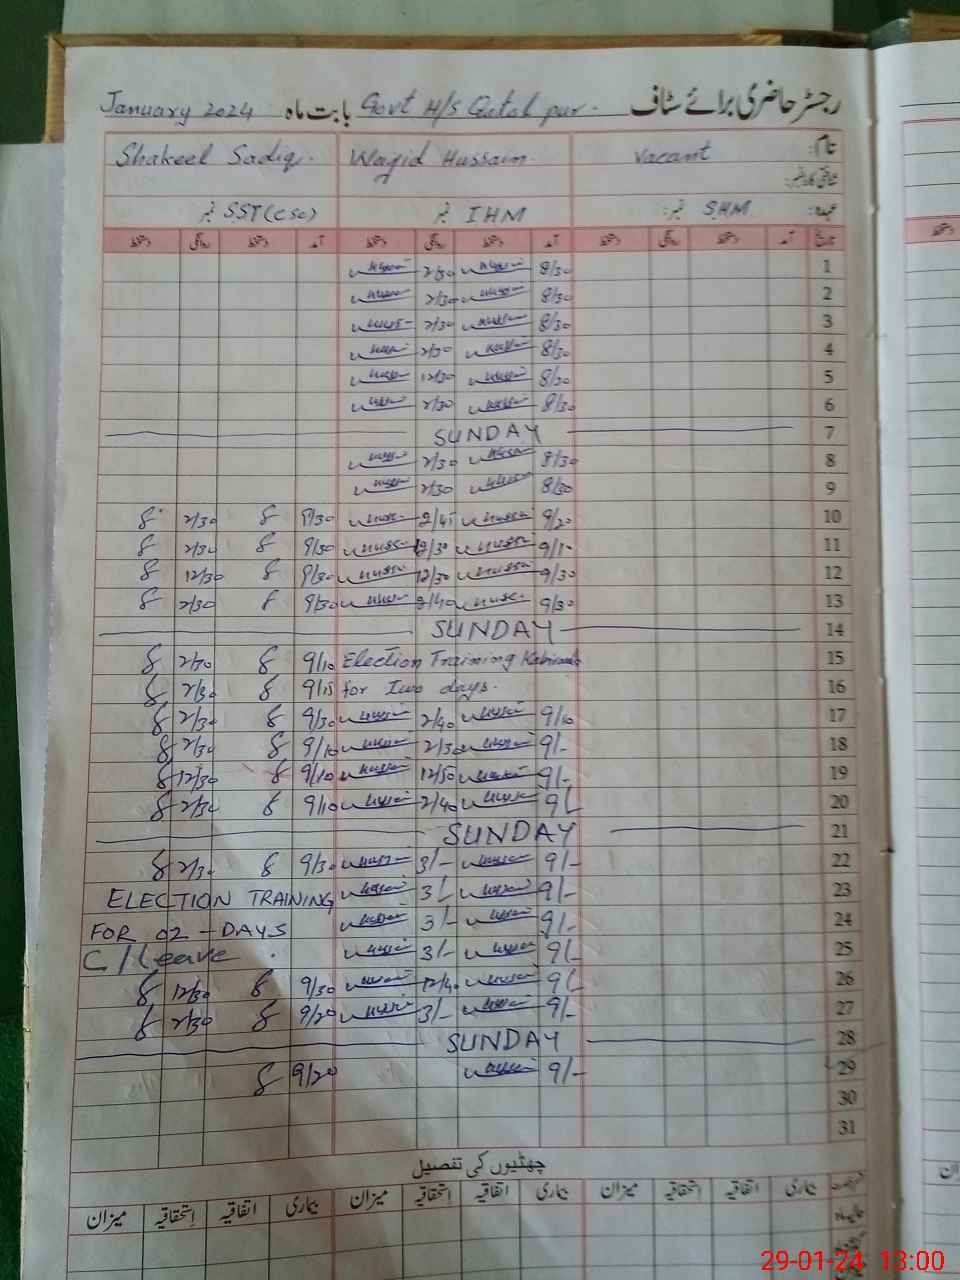 رجسٹر حاضری برائے سٹاف Govt H/S Qatal pur. بابت ماہ January 2024
نام: Vacant Wajid Hussain. Shakeel Sadiq.
عہدہ: SHM نمبر: IHM نمبر SST(CSC) نمبر
تاریخ آمد دستخط روانگی دستخط آمد دستخط روانگی دستخط آمد دستخط روانگی دستخط
1 8/30 2/30
2 8/30 2/30
3 8/30 2/30
4 8/30 2/30
5 8/30 12/30
6 8/30 2/30
7 SUNDAY
8 8/30 2/30
9 8/30 2/30
10 9/20 2/45 9/30 2/30
11 9/10 12/30 9/30 2/30
12 9/30 12/30 9/30 12/30
13 9/30 2/40 9/30 2/30
14 SUNDAY
15 Election Training 9/10 2/30
16 for Two days. 9/15 2/30
17 9/10 2/40 9/30 2/30
18 9/- 2/30 9/10 2/30
19 9/- 12/50 9/10 12/30
20 9/- 2/40 9/10 2/30
21 SUNDAY
22 9/- 3/- 9/30 2/30
23 9/- 3/- ELECTION TRAINING
24 9/- 3/- FOR 02 - DAYS
25 9/- 3/- C/Leave.
26 9/- 12/40 9/30 12/30
27 9/- 3/- 9/20 2/30
28 SUNDAY
29 9/- 9/20
30
31
چھٹیوں کی تفصیل
بیماری اتفاقیہ استحقاقیہ میزان بیماری اتفاقیہ استحقاقیہ میزان بیماری اتفاقیہ استحقاقیہ میزان
29-01-24 13:00